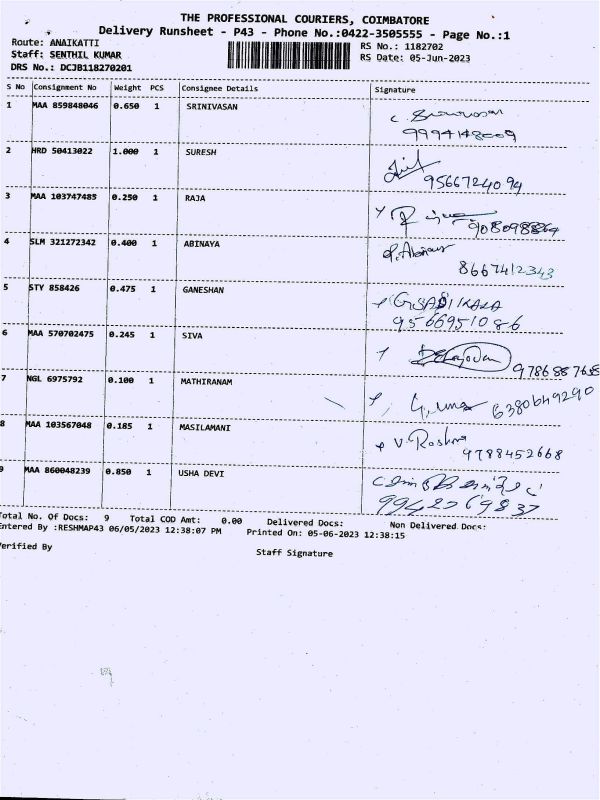 THE PROFESSIONAL COURIERS, COIMBATORE
Delivery Runsheet - P43 - Phone No.:0422-3505555 - Page No.:1
Route: ANAIKATTI
RS No.: 1182702
Staff: SENTHIL KUMAR
RS Date: 05-Jun-2023
DRS No.: DCJB118270201
S No Consignment No Weight PCS Consignee Details Signature
1 MAA 859848046 0.650 1 SRINIVASAN
2 HRD 50413022 1.000 1 SURESH
9566724094
3 MAA 103747485 0.250 1 RAJA
4 SLM 321272342 0.400 1 ABINAYA
8667412343
5 STY 858426 0.475 1 GANESHAN
9566951086
6 MAA 570702475 0.245 1 SIVA
7 NGL 6975792 0.100 1 MATHIRANAM
6380649290
8 MAA 103567048 0.185 1 MASILAMANI
V. Roshna
9788452668
9 MAA 860048239 0.850 1 USHA DEVI
9942769837
Total No. Of Docs: 9 Total COD Amt: 0.00 Delivered Docs: Non Delivered Docs:
Entered By :RESHMAP43 06/05/2023 12:38:07 PM Printed On: 05-06-2023 12:38:15
Verified By
Staff Signature